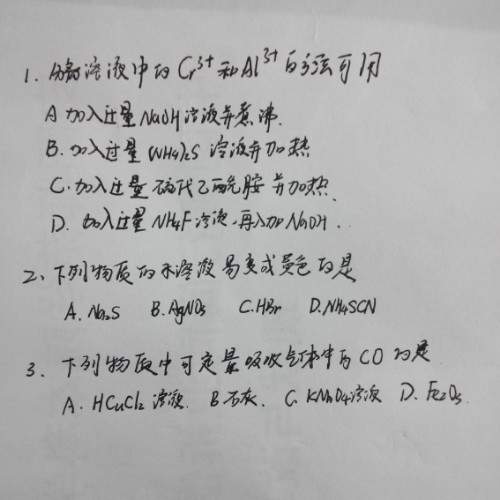 1. 分离溶液中的Cr³⁺和Al³⁺的方法可用
A 加入过量NaOH溶液并煮沸.
B. 加入过量(NH4)2S 溶液并加热
C. 加入过量硫代乙酰胺并加热.
D. 加入过量NH4F溶液,再加NaOH.
2. 下列物质的水溶液易变成黄色的是
A. Na2S B. AgNO3 C. HBr D. NH4SCN
3. 下列物质中可定量吸收气体中的CO的是
A. HCuCl2 溶液. B 石灰. C. KMnO4溶液 D. Fe2O3